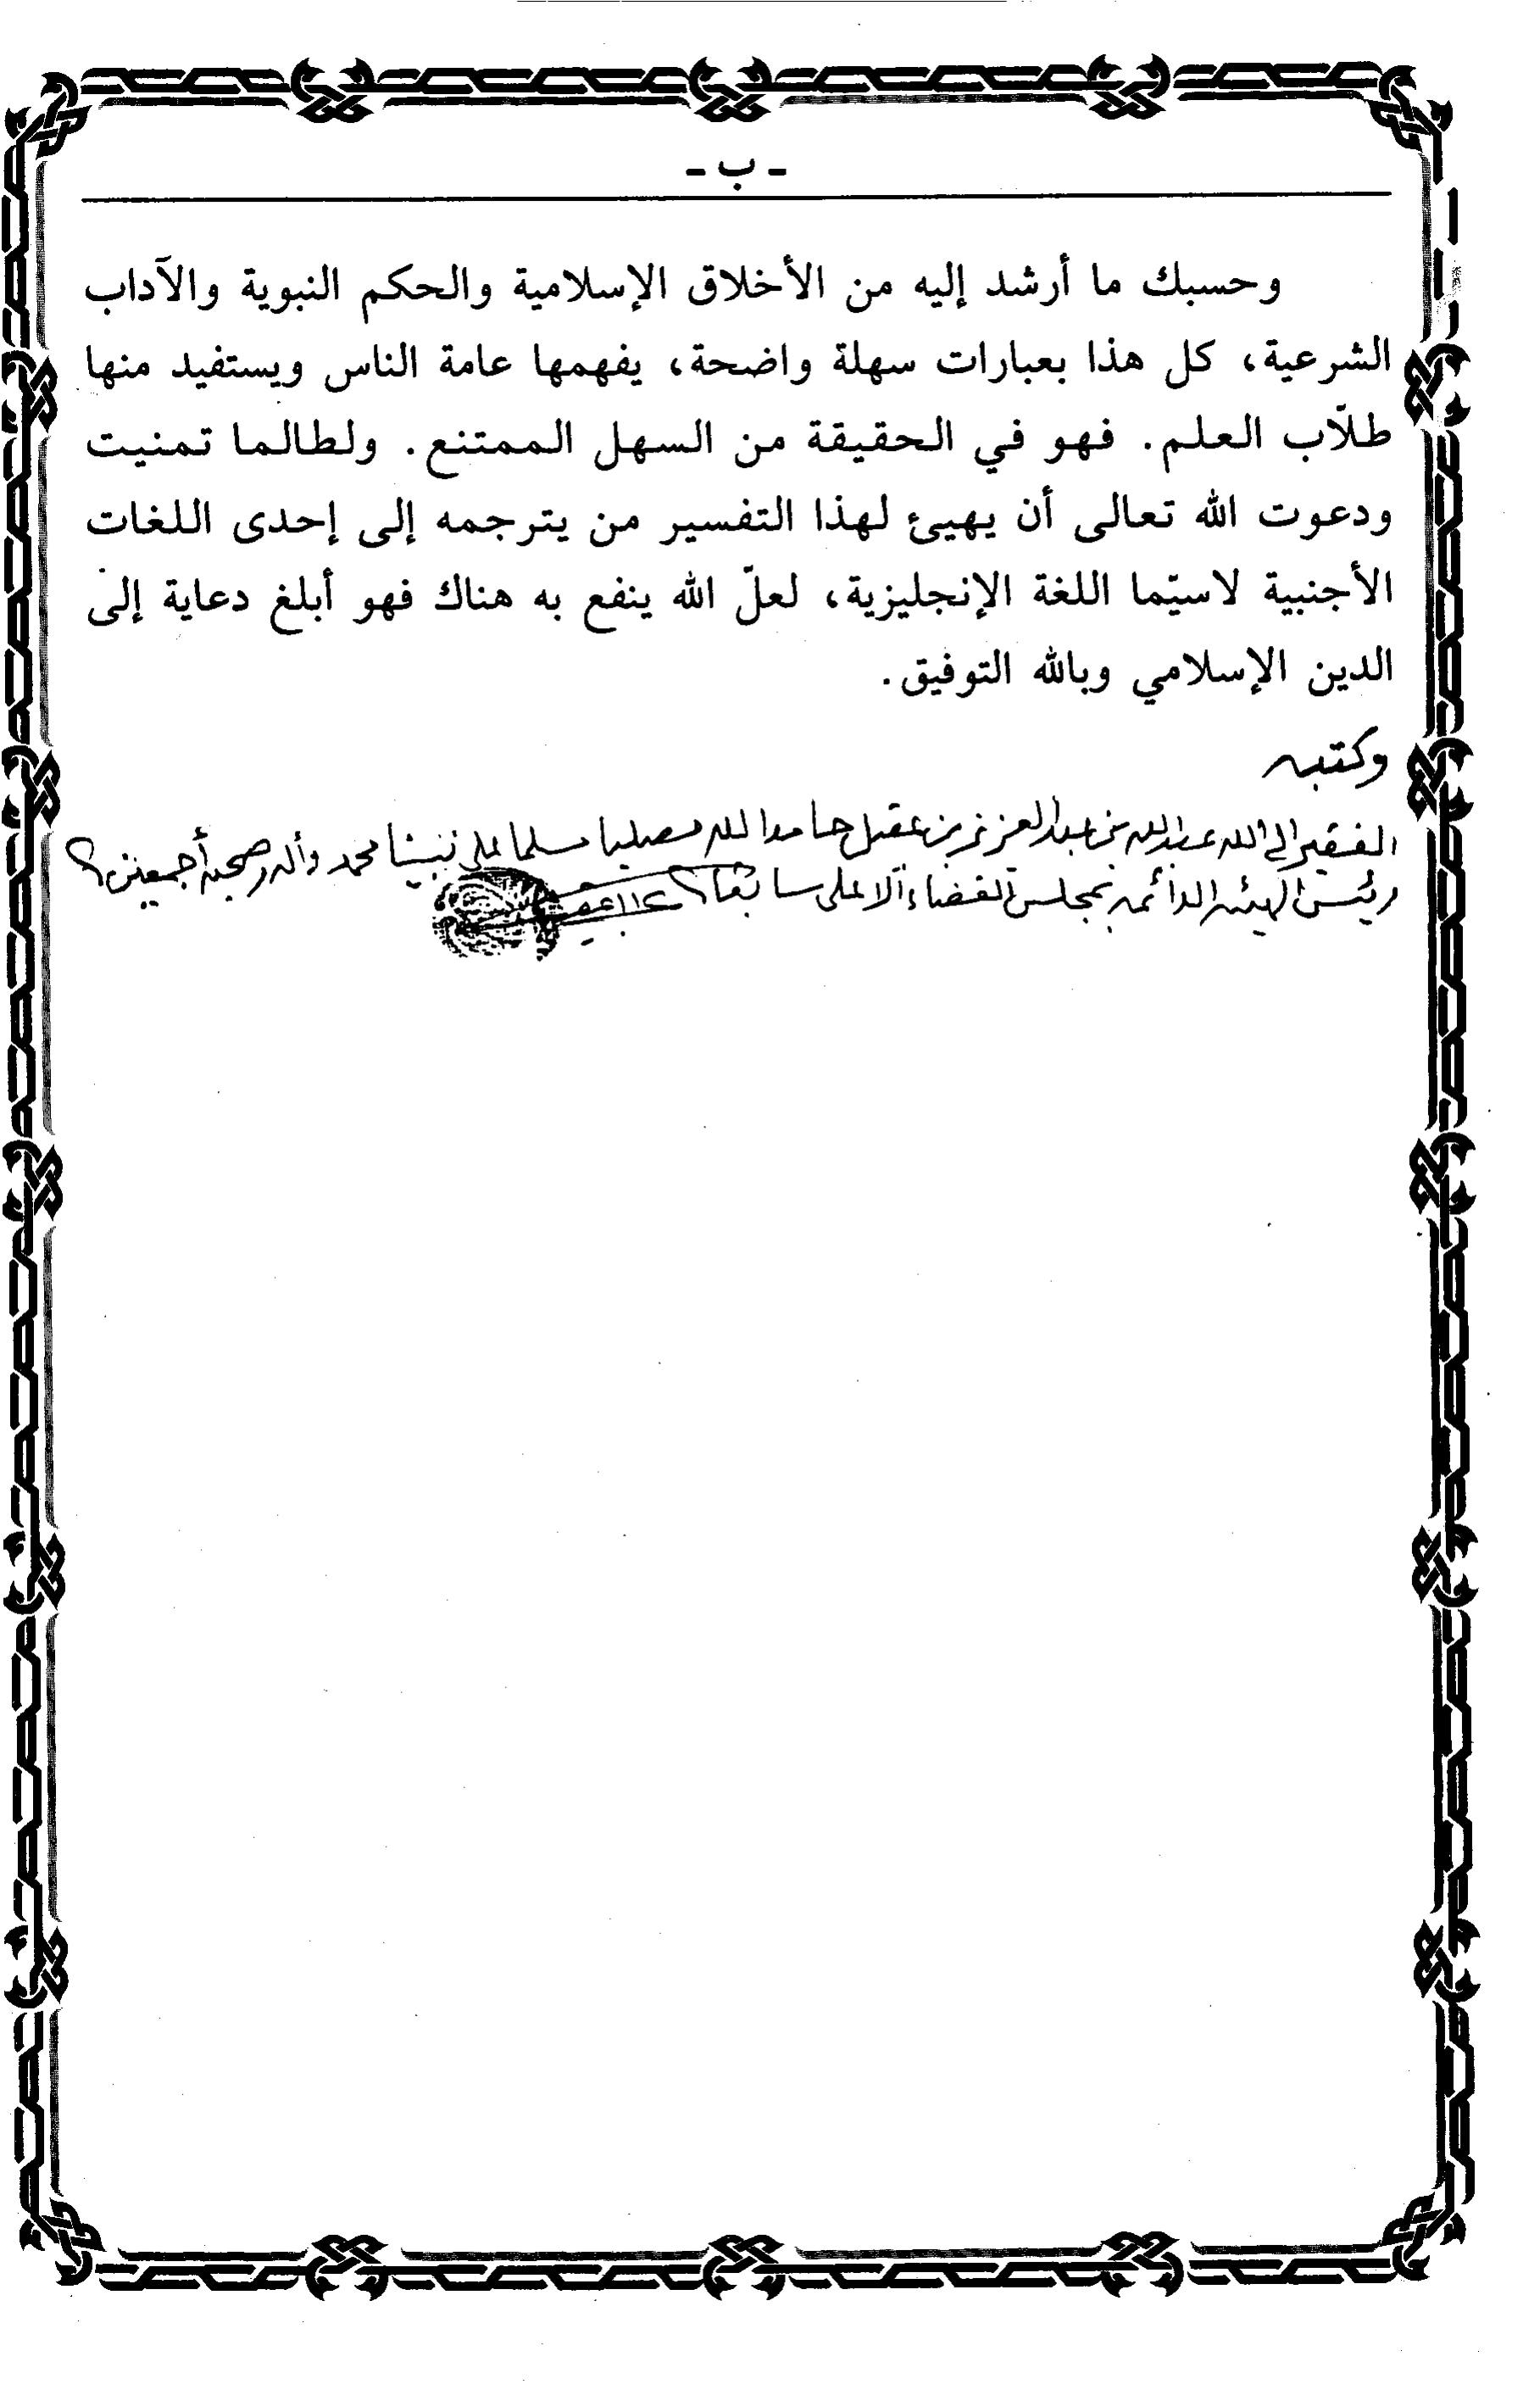 - ب -
وحسبك ما أرشد إليه من الأخلاق الإسلامية والحكم النبوية والآداب
الشرعية، كل هذا بعبارات سهلة واضحة، يفهمها عامة الناس ويستفيد منها
طلّاب العلم. فهو في الحقيقة من السهل الممتنع. ولطالما تمنيت
ودعوت الله تعالى أن يهيئ لهذا التفسير من يترجمه إلى إحدى اللغات
الأجنبية لاسيّما اللغة الإنجليزية، لعلّ الله ينفع به هناك فهو أبلغ دعاية إلى
الدين الإسلامي وبالله التوفيق.
وكتبه
الفقير إلى الله عبدالله بن عبدالعزيز بن عقيل حامدا لله مصليا مسلما على نبينا محمد وآله وصحبه أجمعين
رئيس الهيئة الدائمة بمجلس القضاء الأعلى سابقا